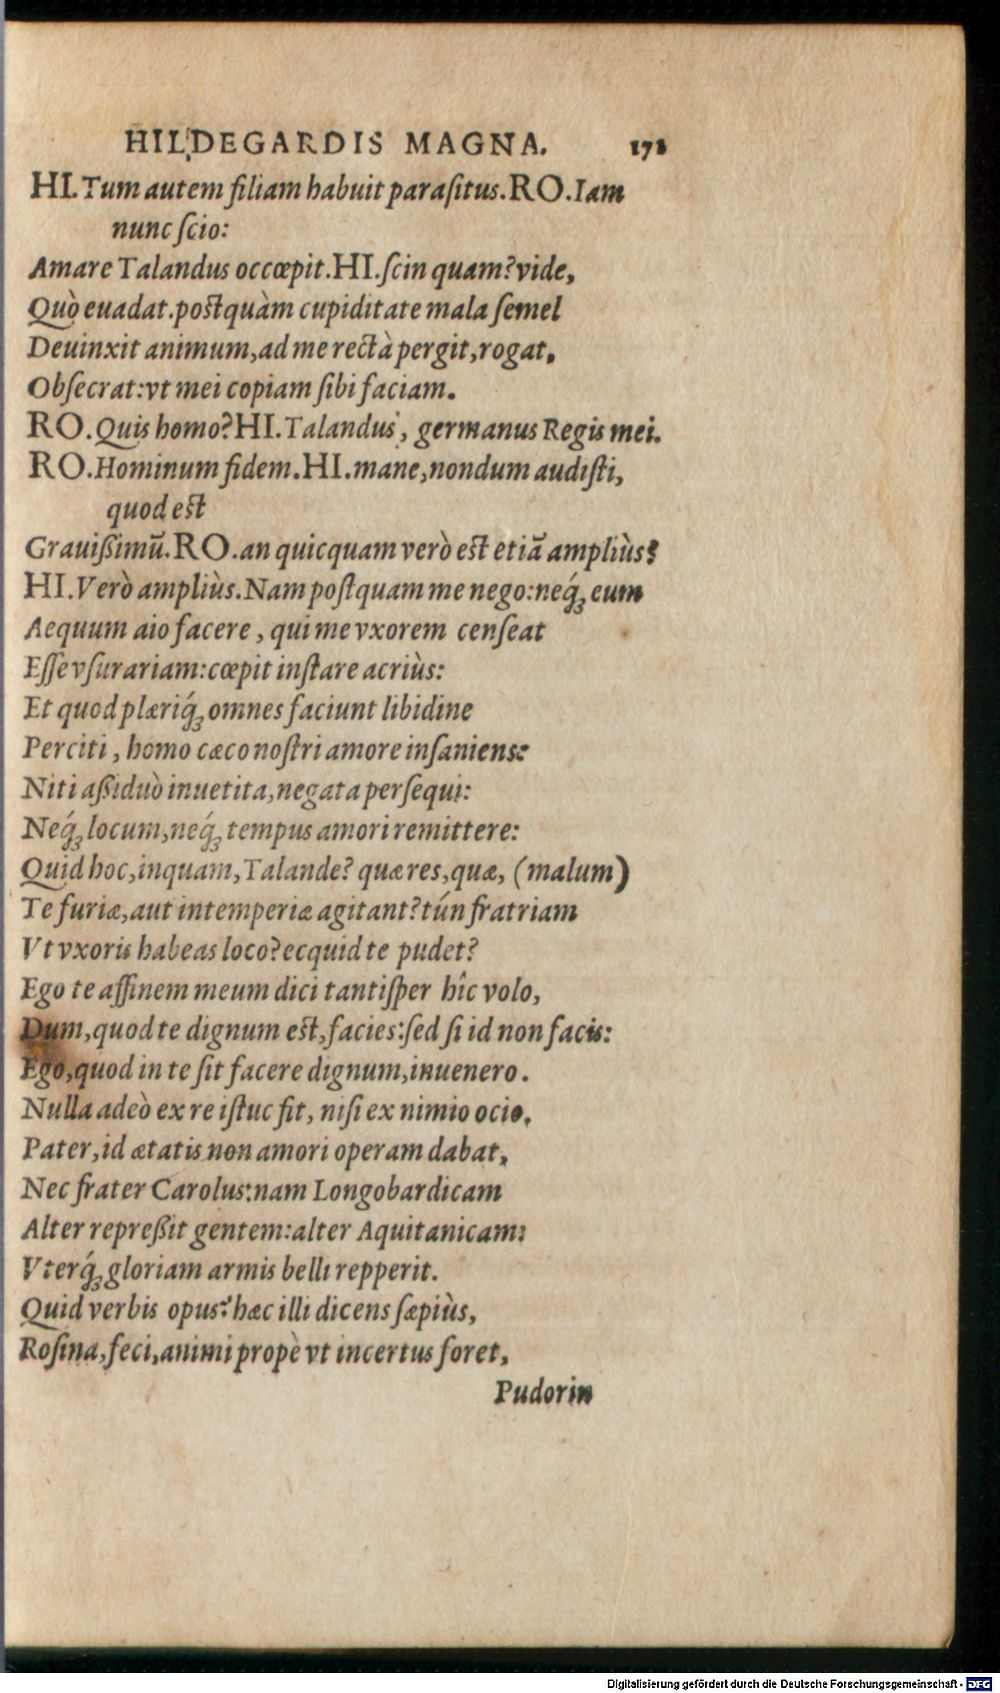 HILDEGARDIS MAGNA. 171
HI. Tum autem filiam habuit paraſitus. RO. Iam
nunc ſcio:
Amare Talandus occœpit. HI. ſcin quam? vide,
Quò euadat. poſtquàm cupiditate mala ſemel
Deuinxit animum, ad me rectà pergit, rogat,
Obſecrat: vt mei copiam ſibi faciam.
RO. Quis homo? HI. Talandus, germanus Regis mei.
RO. Hominum fidem. HI. mane, nondum audiſti,
quod eſt
Grauiſſimū. RO. an quicquam verò eſt etiā ampliùs?
HI. Verò ampliùs. Nam poſtquam me nego: neq́ꝫ eum
Aequum aio facere, qui me vxorem cenſeat
Eſſe vſurariam: cœpit inſtare acriùs:
Et quod plæriq́ꝫ omnes faciunt libidine
Perciti, homo cæco noſtri amore inſaniens:
Niti aſſiduò in vetita, negata perſequi:
Neq́ꝫ locum, neq́ꝫ tempus amori remittere:
Quid hoc, inquam, Talande? quæ res, quæ, (malum)
Te furiæ, aut intemperiæ agitant? tún fratriam
Vt vxoris habeas loco? ecquid te pudet?
Ego te affinem meum dici tantiſper hîc volo,
Dum, quod te dignum eſt, facies: ſed ſi id non facis:
Ego, quod in te ſit facere dignum, inuenero.
Nulla adeò ex re iſtuc fit, niſi ex nimio ocio,
Pater, id ætatis non amori operam dabat,
Nec frater Carolus: nam Longobardicam
Alter repreſſit gentem: alter Aquitanicam:
Vterq́ꝫ gloriam armis belli repperit.
Quid verbis opus? hæc illi dicens ſæpiùs,
Roſina, feci, animi propè vt incertus foret,
Pudorin
Digitalisierung gefördert durch die Deutsche Forschungsgemeinschaft - DFG